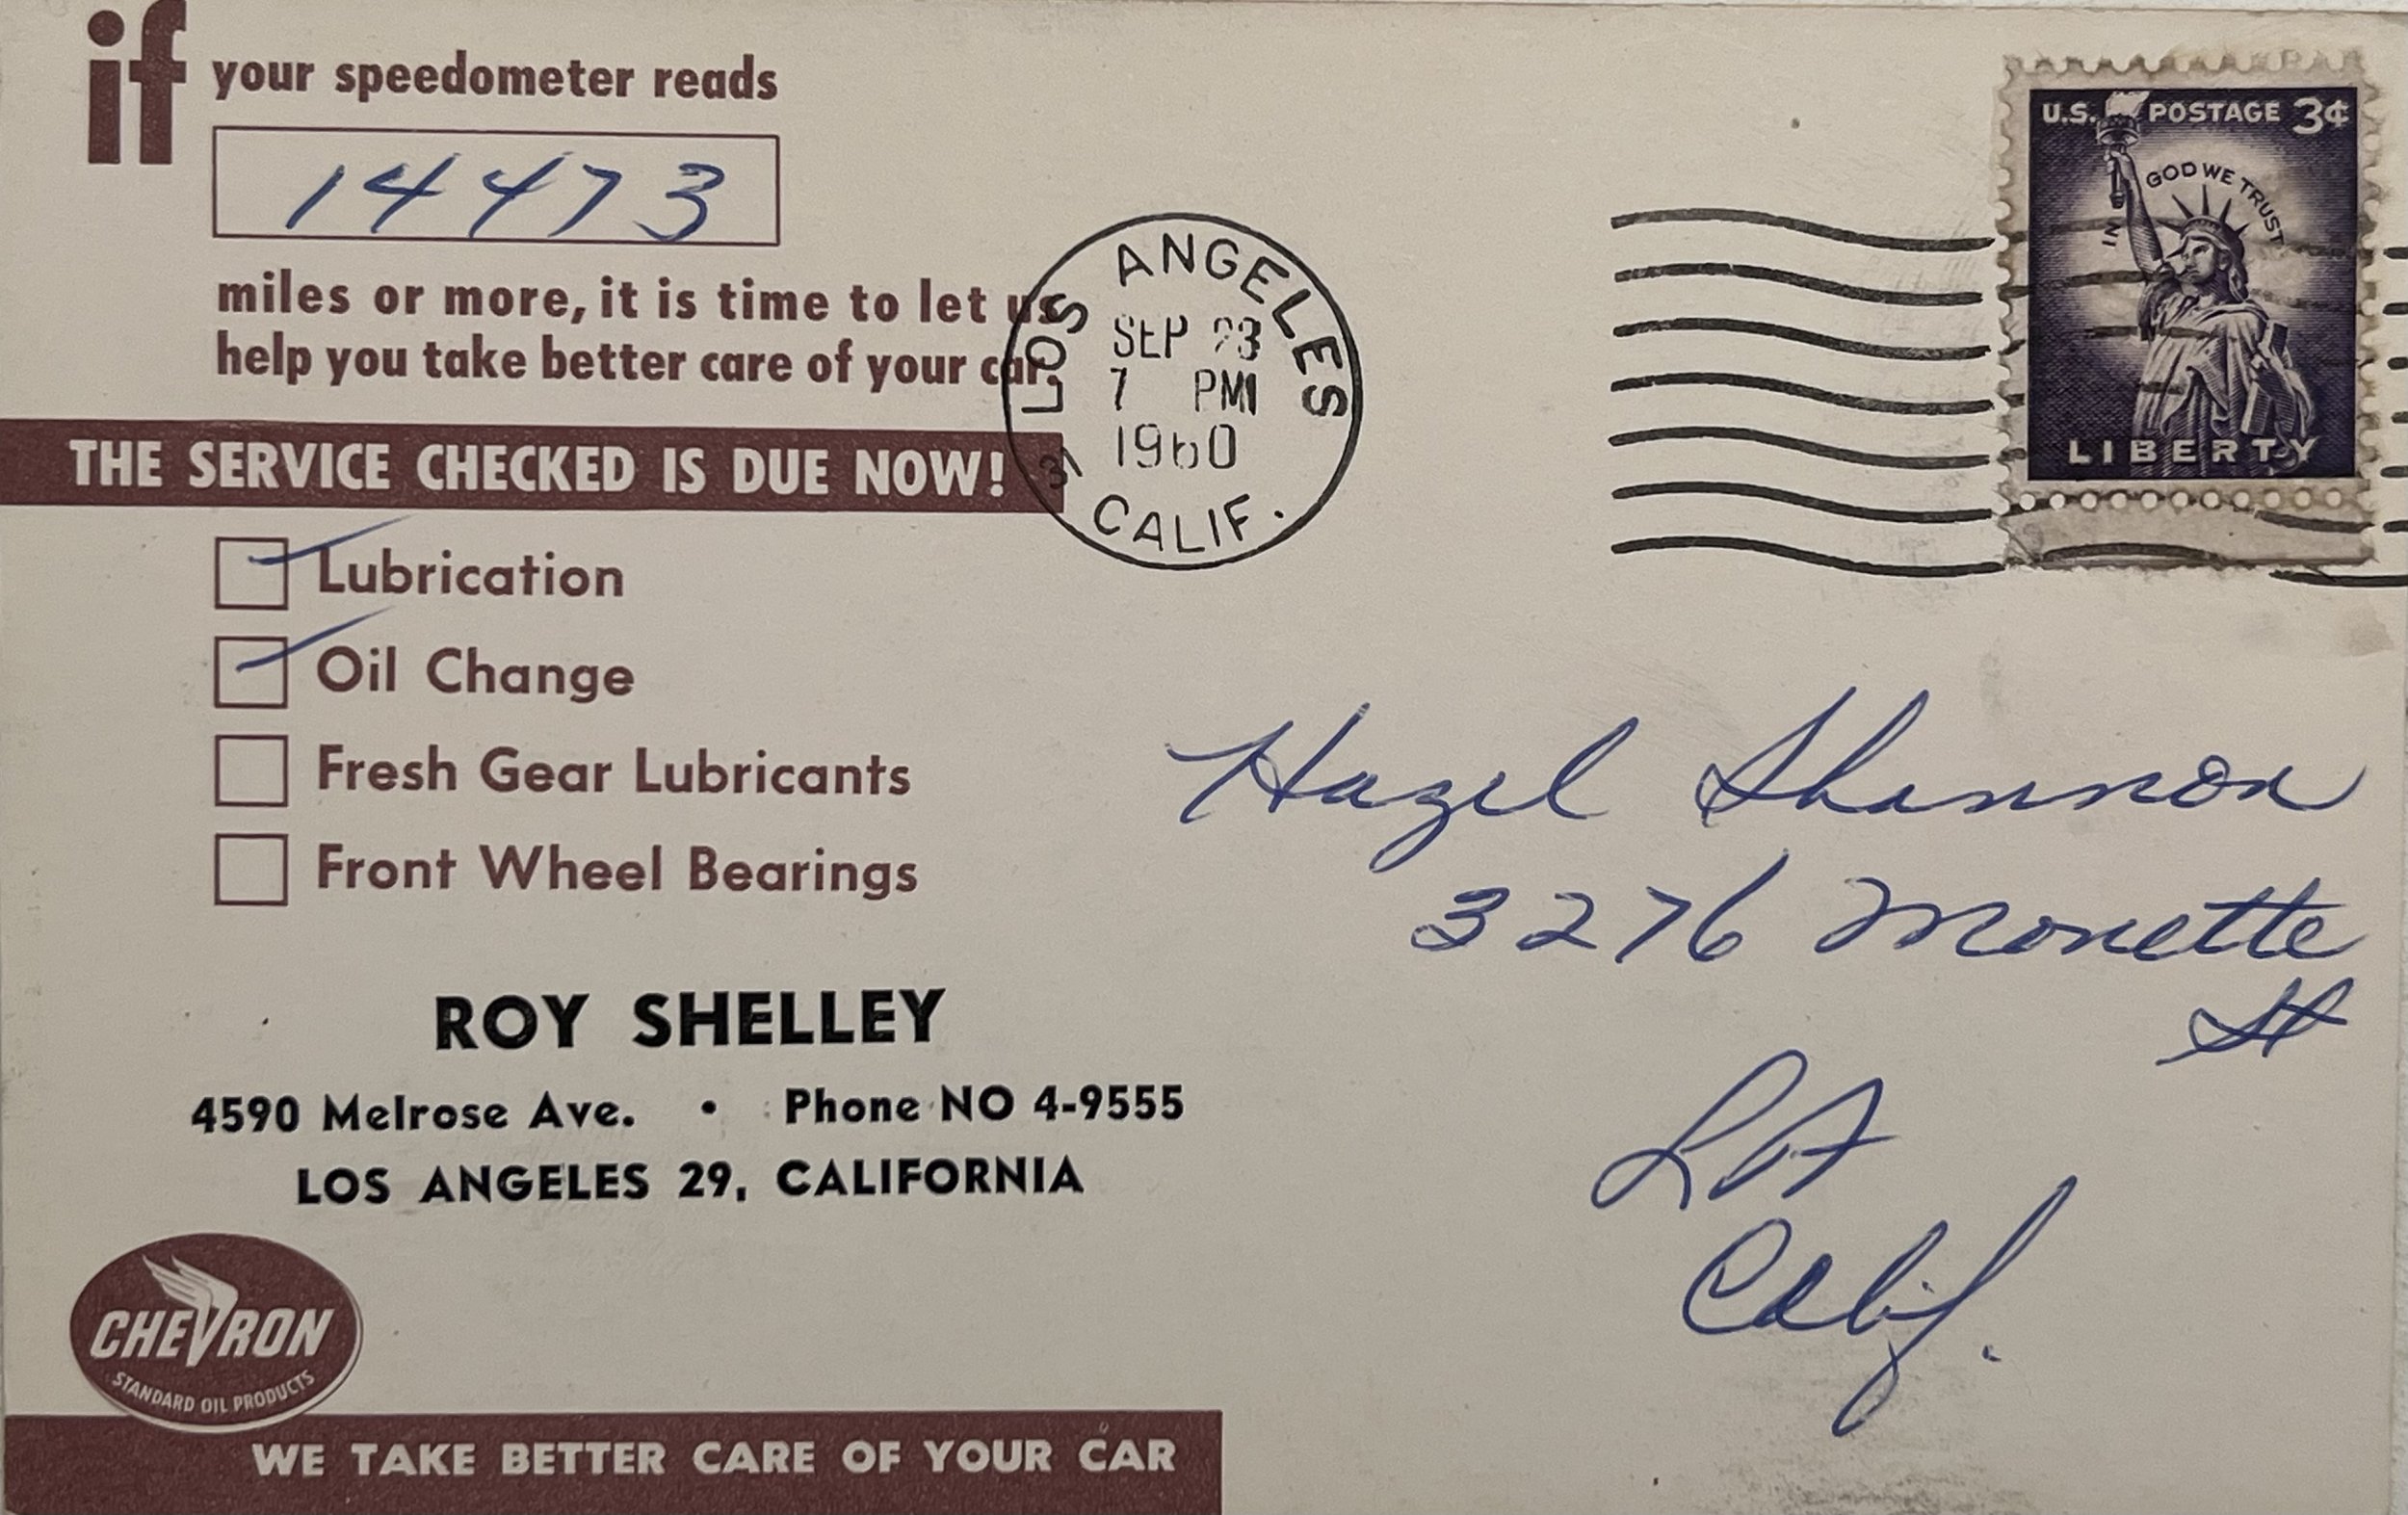 if your speedometer reads
14473
miles or more, it is time to let us
help you take better care of your car.
THE SERVICE CHECKED IS DUE NOW!
Lubrication
Oil Change
Fresh Gear Lubricants
Front Wheel Bearings
ROY SHELLEY
4590 Melrose Ave. • Phone NO 4-9555
LOS ANGELES 29, CALIFORNIA
CHEVRON
STANDARD OIL PRODUCTS
WE TAKE BETTER CARE OF YOUR CAR
LOS ANGELES
SEP 23
7 PM
1960
31
CALIF.
U.S. POSTAGE 3¢
IN GOD WE TRUST
LIBERTY
Hazel Shannon
3276 Monette
St
LA
Calif.